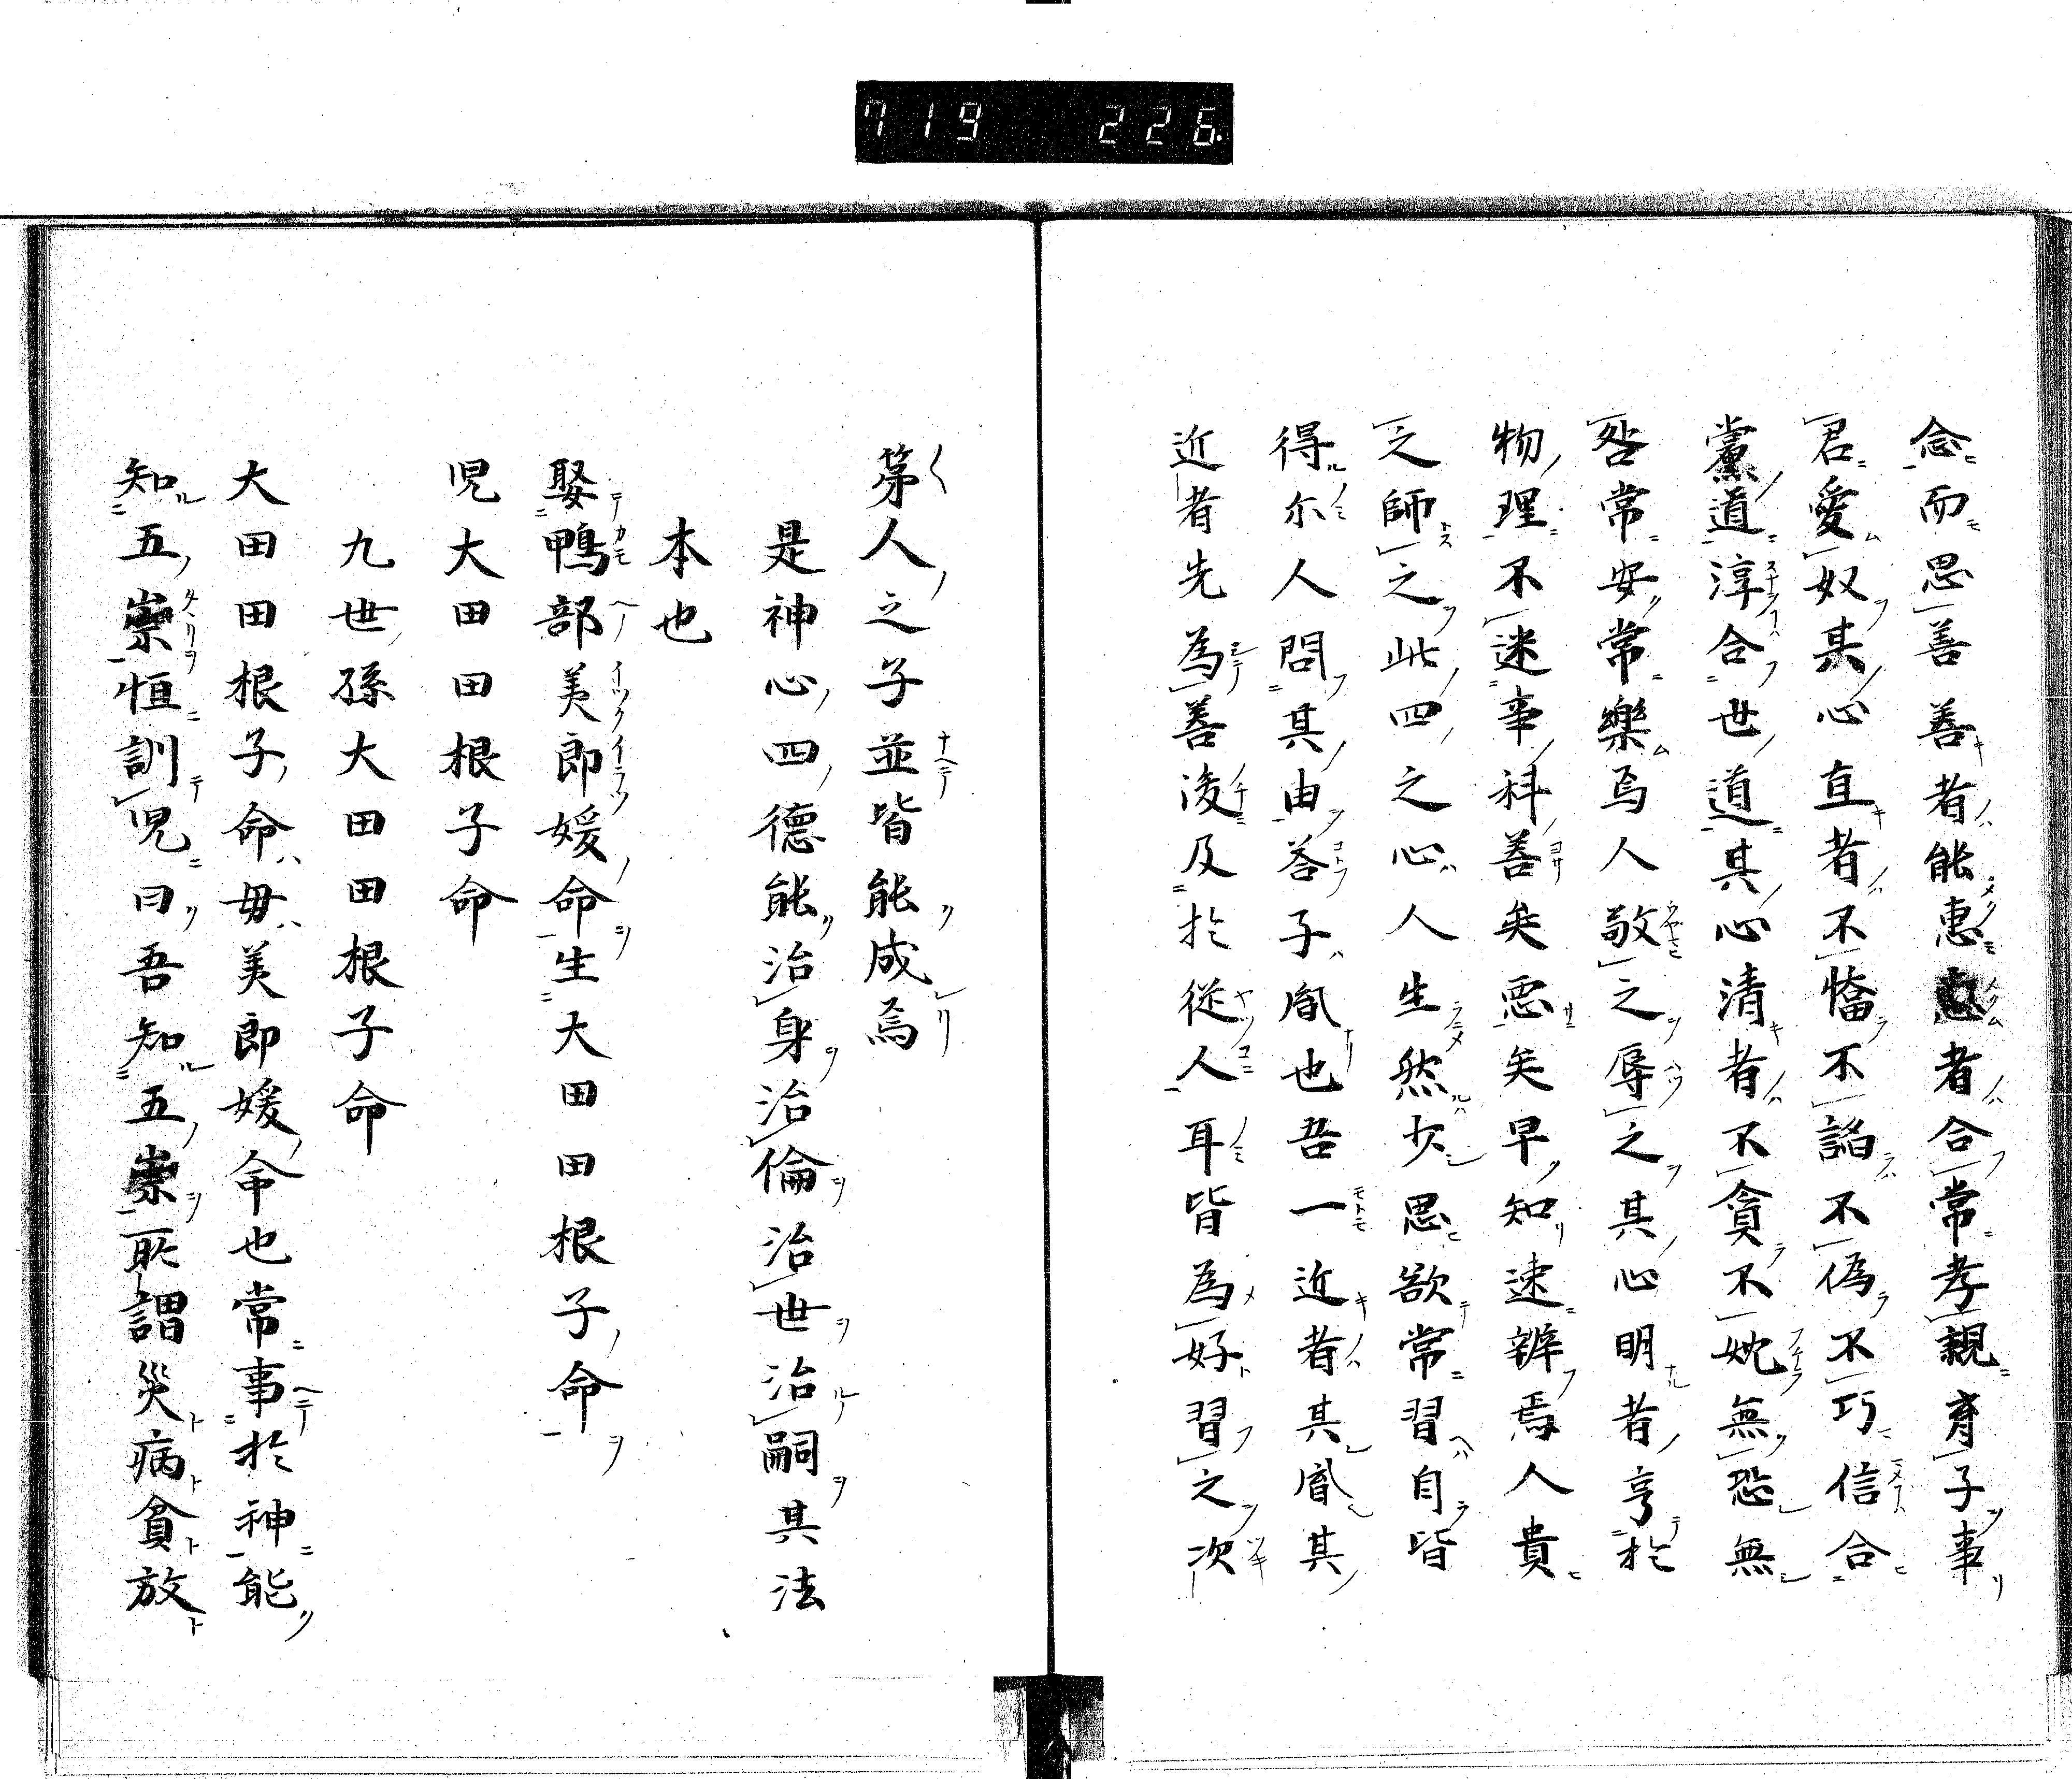 719 226.
念而思善善者能惠惠者合常孝親育子事
君愛奴其心直者不憍不諂不偽不巧信合
黨道淳合世道其心清者不貪不妣無恐無
咎常安常樂焉人敬之辱之其心明者亨於
物理不迷事科善矣惡矣早知速辨焉人貴
之師之此四之心人生然少思欲常習自皆
得尓人問其由答子胤也吾一近者其胤其
近者先為善後及於從人耳皆為好習之次
第人之子並皆能成焉
是神心四德能治身治倫治世治嗣其法
本也
娶鴨部美郎媛命生大田田根子命
児大田田根子命
九世孫大田田根子命
大田田根子命母美郎媛命也常事於神能
知五崇恒訓児曰吾知五崇所謂災病貧放